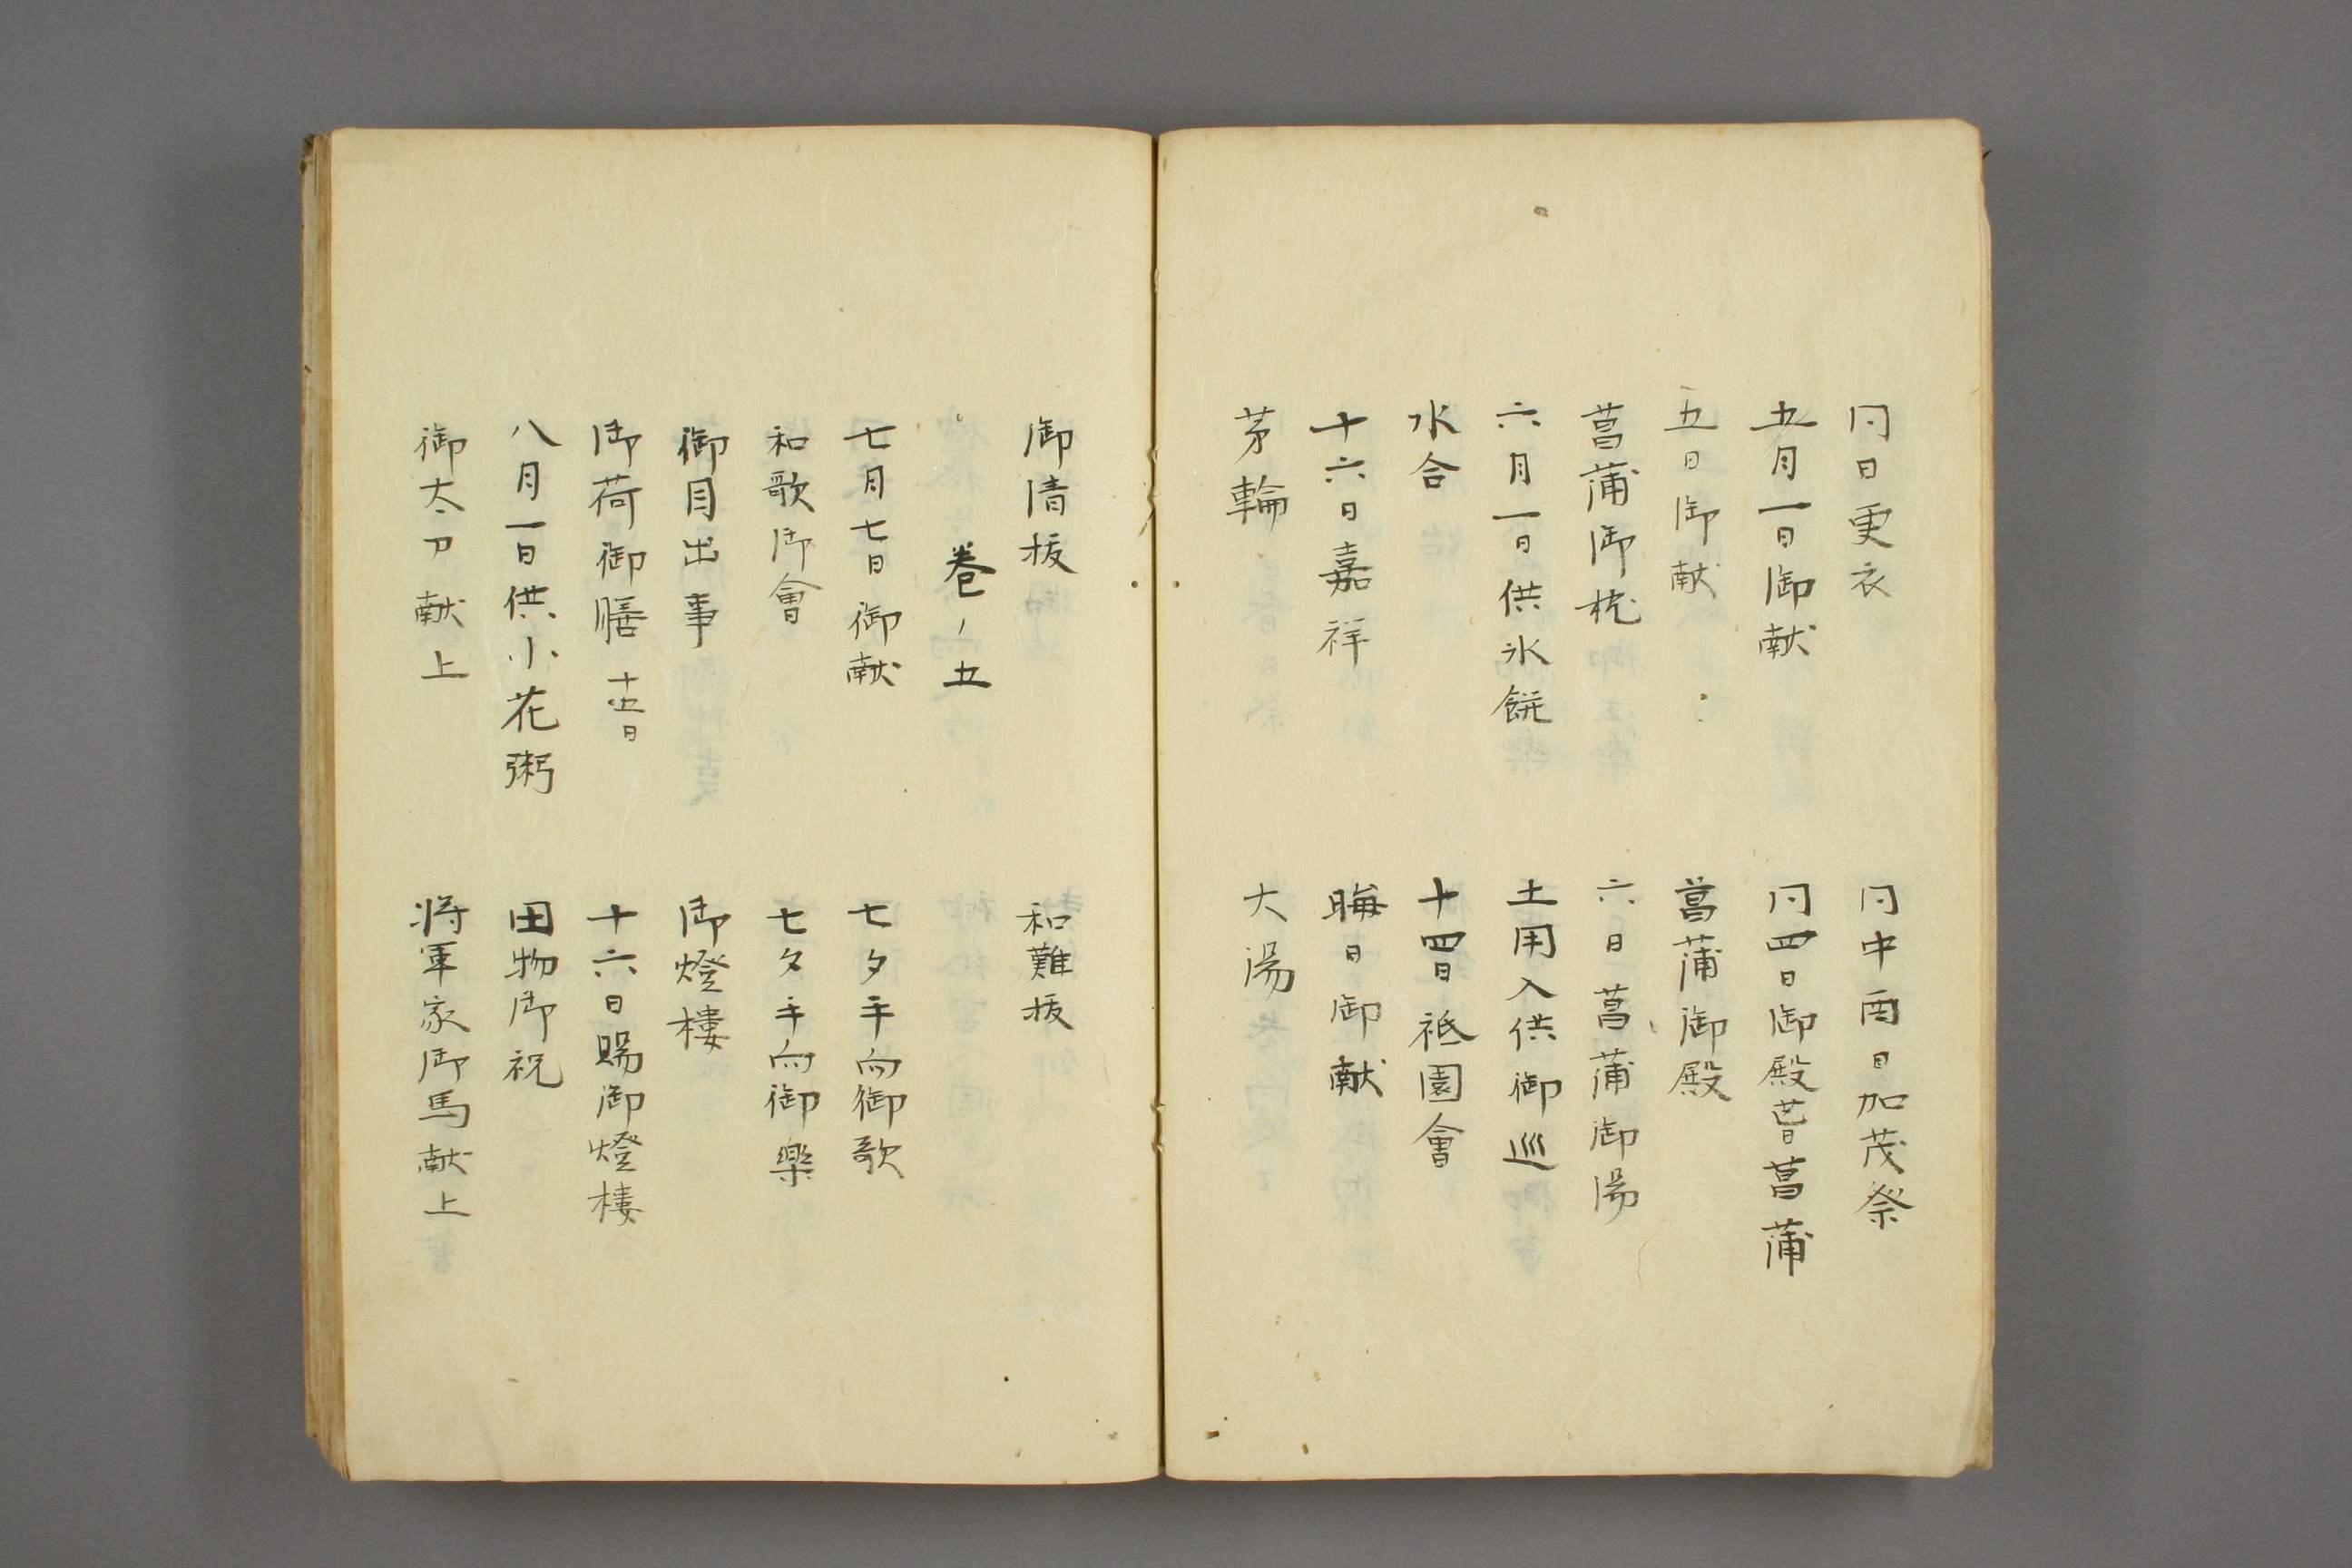 同日更衣
同中酉日加茂祭
五月一日御献
同四日御殿葺菖蒲
五日御献
菖蒲御殿
菖蒲御枕
六日菖蒲御湯
六月一日供氷餅
土用入供御巡
水合
十四日祗園會
十六日嘉祥
晦日御献
茅輪
大湯
御清抜
和難抜
巻ノ五
七月七日御献
七夕手向御歌
和歌御會
七夕手向御楽
御目出事
御燈楼
御荷御膳 十五日
十六日賜御燈楼
八月一日供小花粥
田物御祝
御太刀献上
将軍家御馬献上